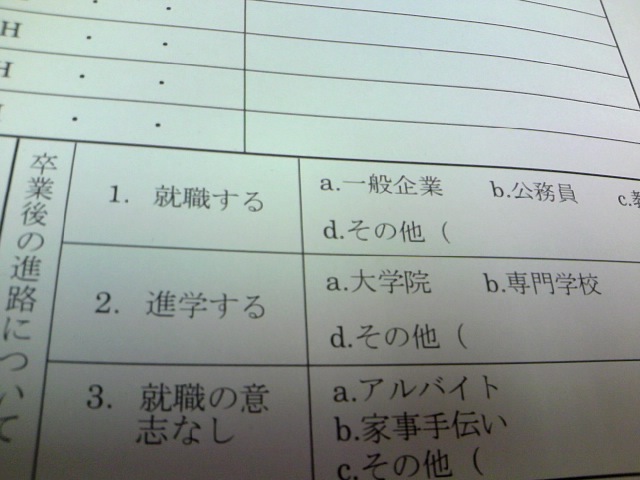 H ・ ・
H ・ ・
・ ・
卒業後の進路について
1. 就職する
a.一般企業 b.公務員 c.教
d.その他（
2. 進学する
a.大学院 b.専門学校
d.その他（
3. 就職の意
志なし
a.アルバイト
b.家事手伝い
c.その他（